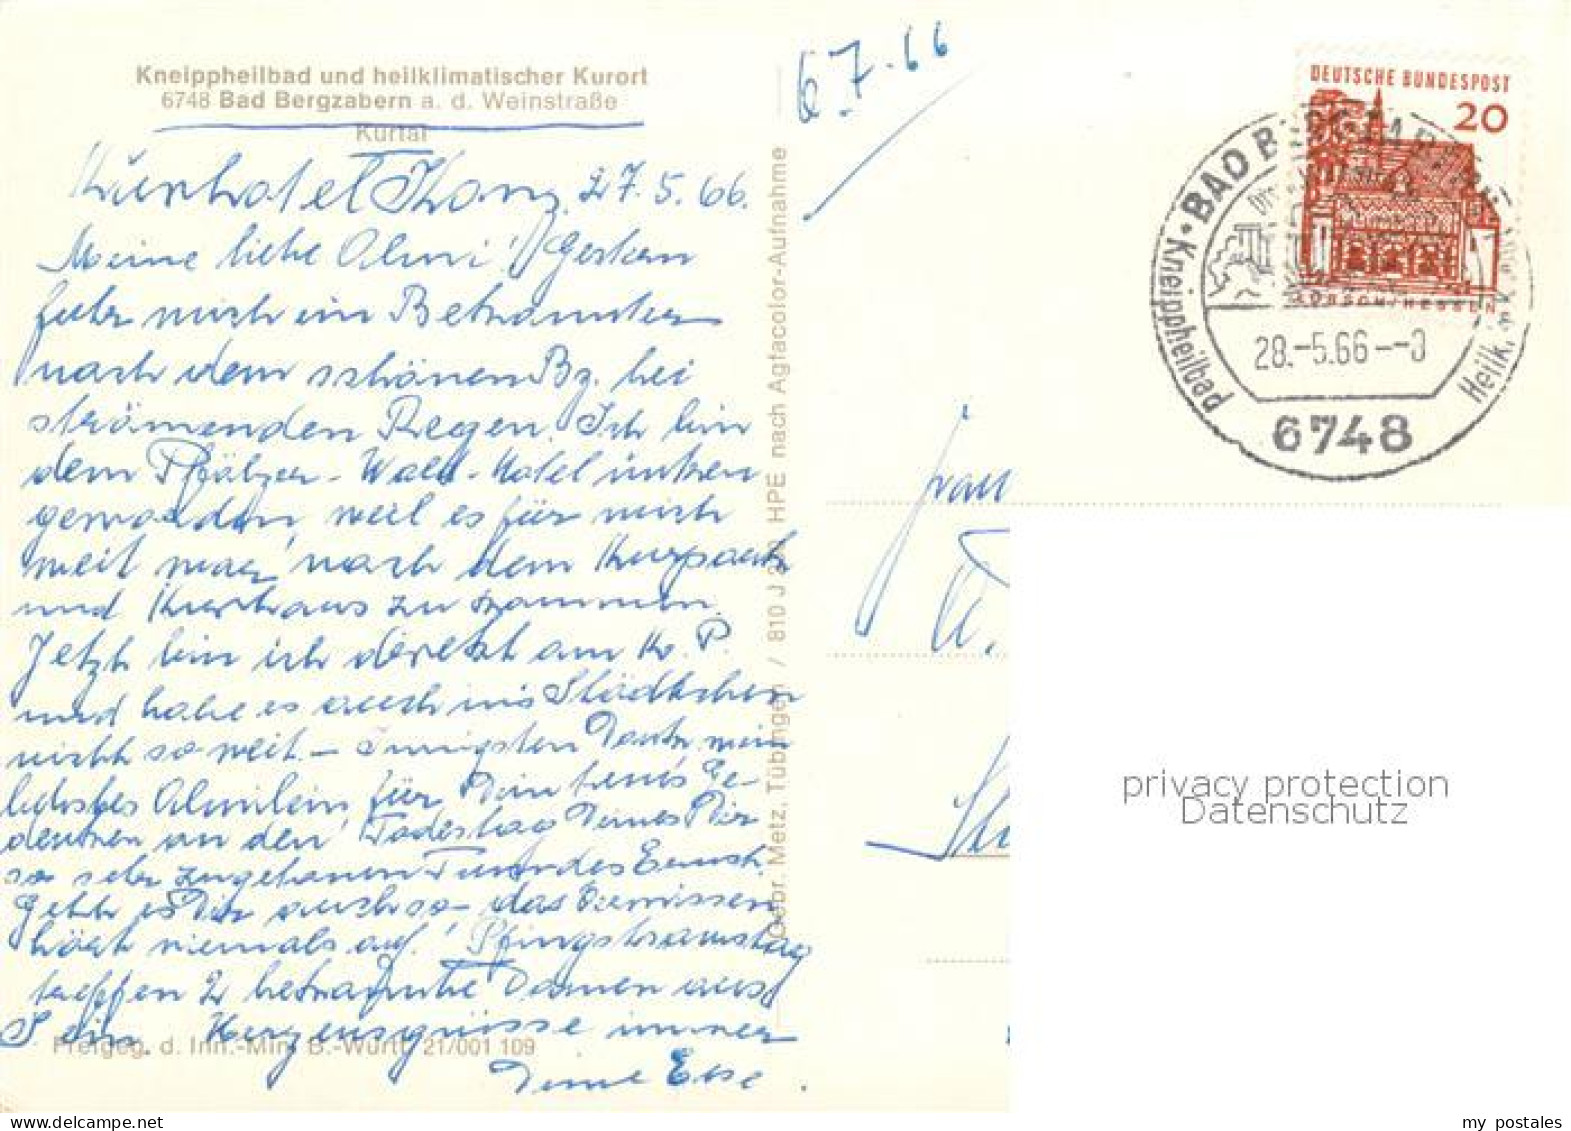 Kneippheilbad und heilklimatischer Kurort
6748 Bad Bergzabern a. d. Weinstraße
Kurtal
Kurhotel 27.5.66.
Meine liebe Almi! Gestern
fuhr mich ein Bekannter
nach dem schönen Bz. bei
strömenden Regen. Ich bin
dem Pfälzer-Wald-Hotel untreu
geworden, weil es für mich
weit war, nach dem Kurpark
und Kurhaus zu kommen.
Jetzt bin ich direkt am K. P.
und habe es auch ins Städtchen
nicht so weit. – Innigsten Dank, mein
liebstes Almilein, für Dein Ge-
denken an den Todestag Deines Dir
so sehr
Geht es Dir auch so – das Vermissen
hört niemals auf! Pfingstsamstag
treffen 2 bekannte Damen aus
ein. Herzensgrüsse immer
Deine
Freigeg. d. Inn.-Min. B.-Württ. 21/001 109
Gebr. Metz, Tübingen / 810 J HPE nach Agfacolor-Aufnahme
6.7.66
DEUTSCHE BUNDESPOST
20
LORSCH/HESSEN
BAD BERGZABERN
Kneippheilbad
Heilk.
28.-5.66--
6748
Frau
privacy protection
Datenschutz
my_postales